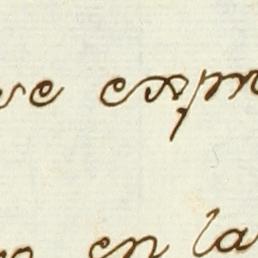 se exp
en la